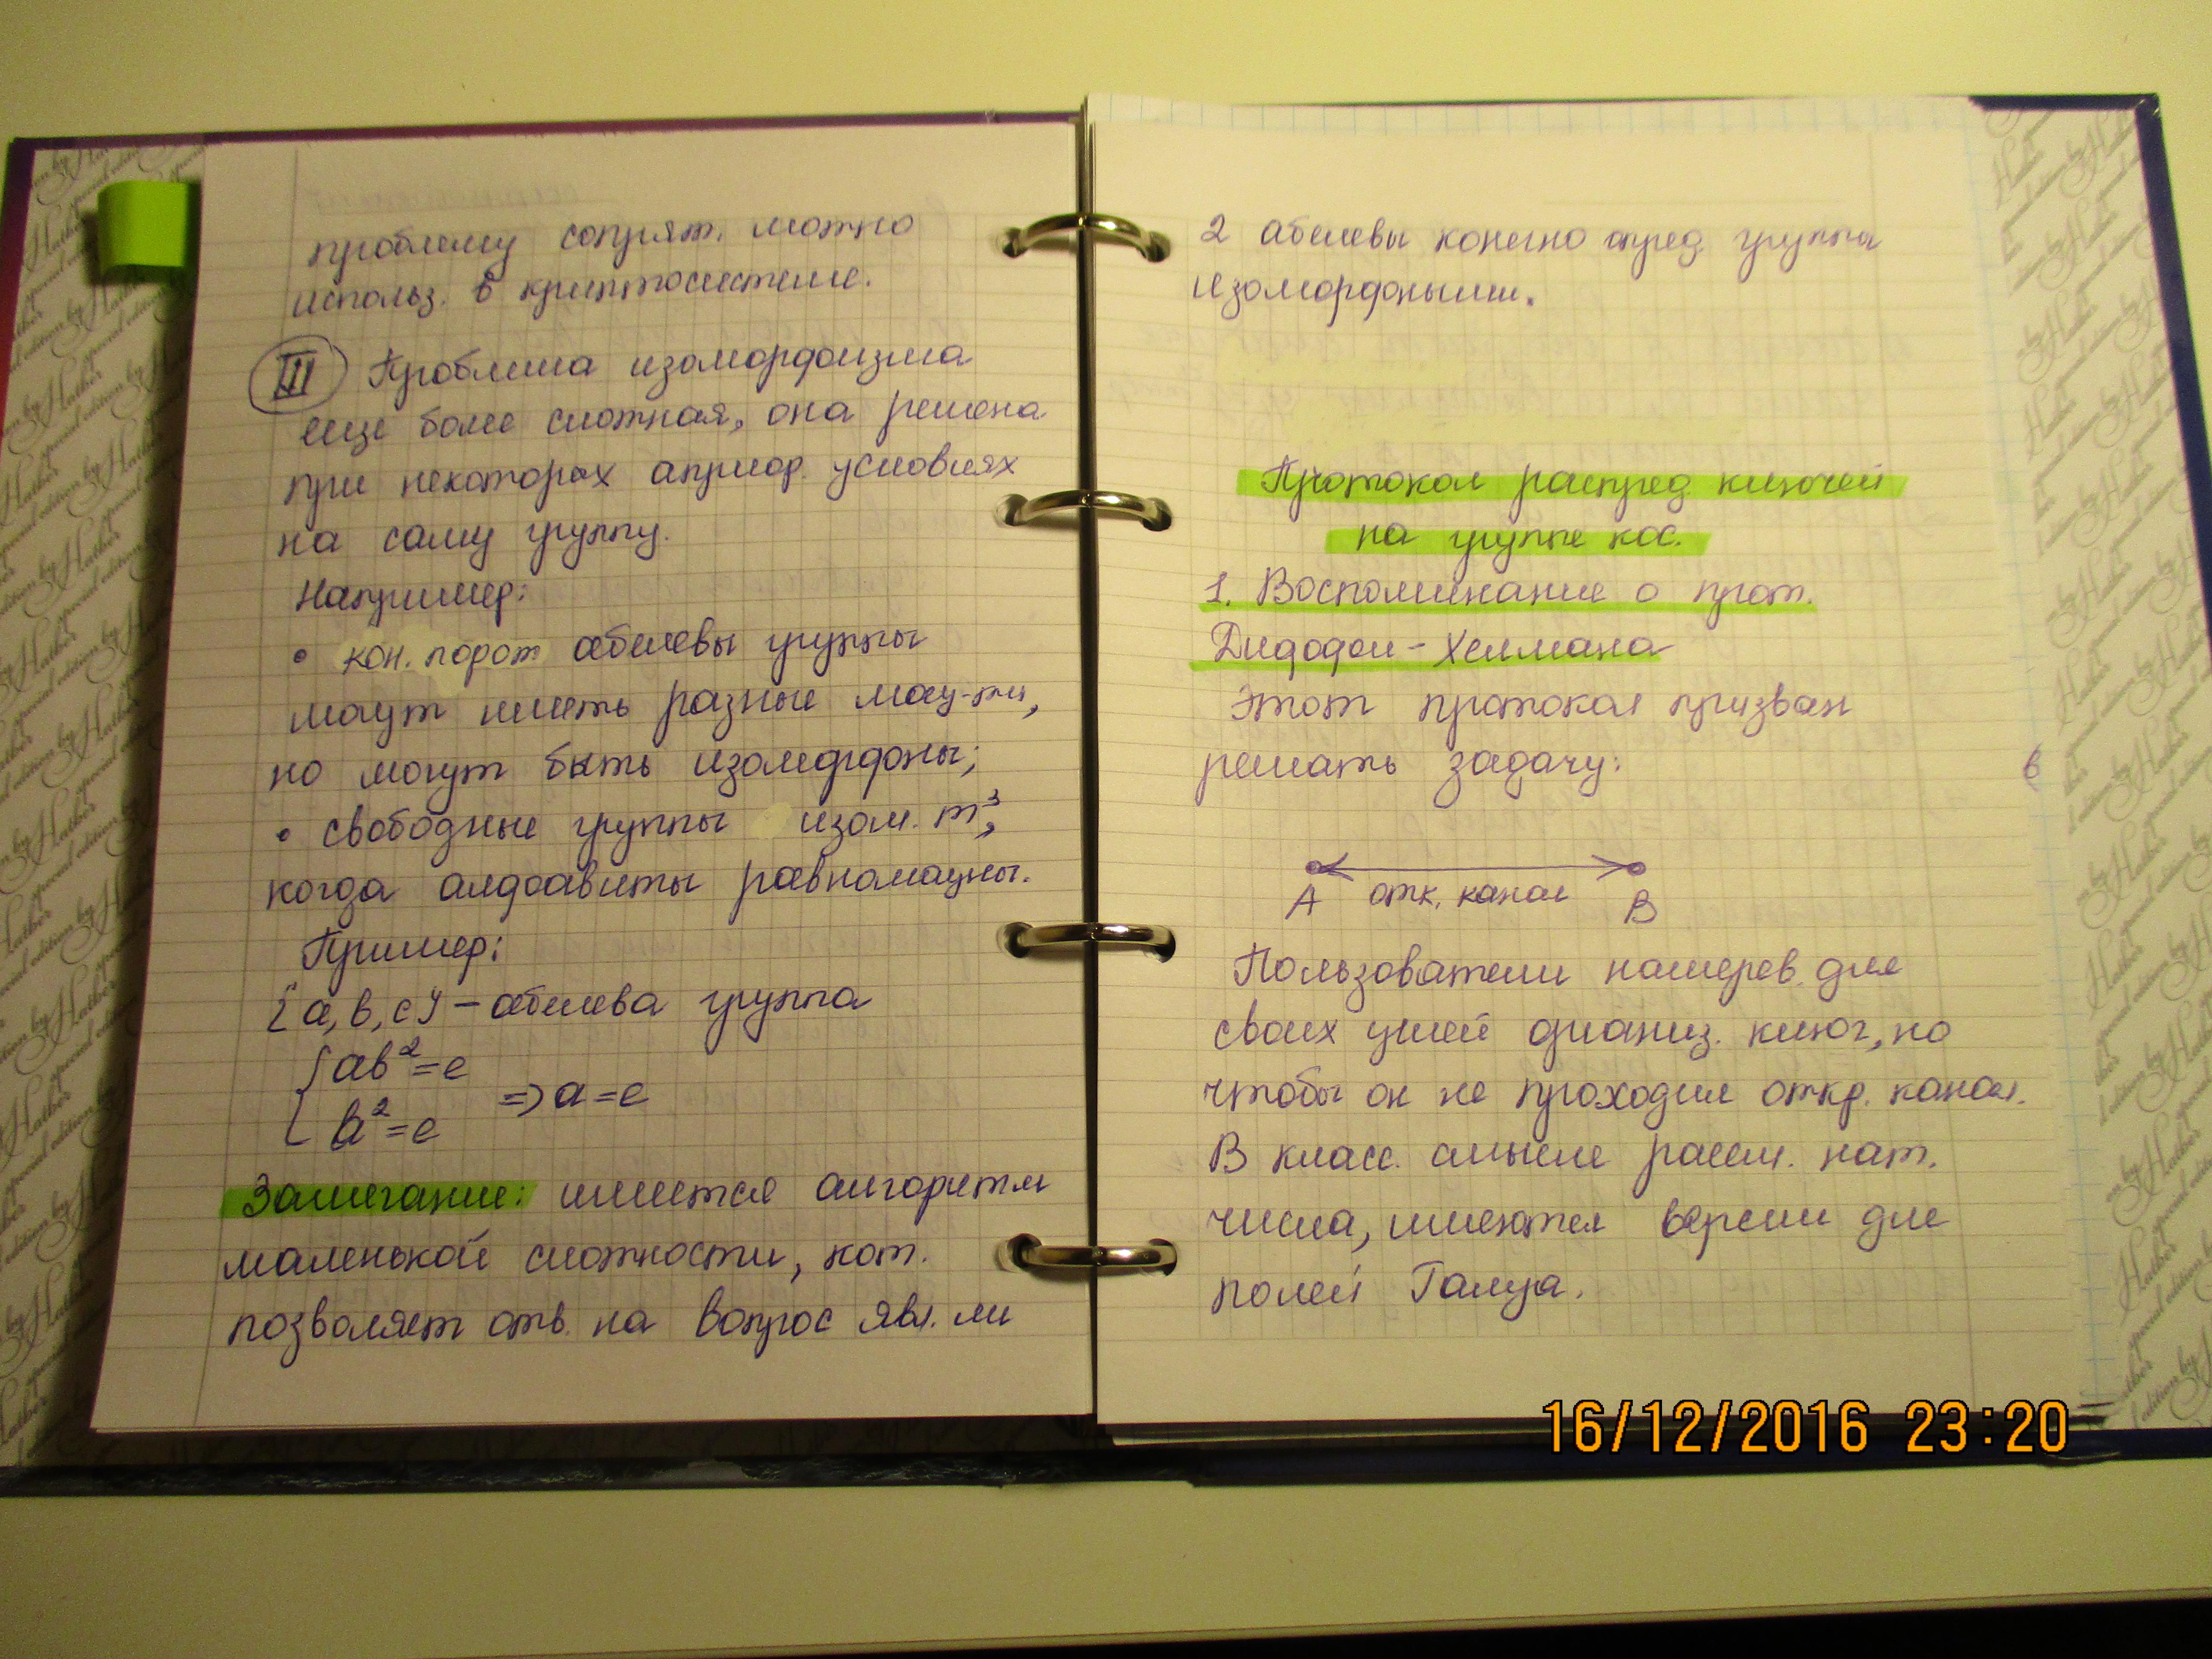 проблему сопряж. можно
использ. в криптосистеме.
III Проблема изоморфизма
еще более сложная, она решена
при некоторых априор. условиях
на саму группу.
Например:
• кон. порож абелевы группы
могут иметь разные мощ-ти,
но могут быть изоморфны;
• свободные группы изом. т³,
когда алфавиты равномощны.
Пример:
{a, b, c} – абелева группа
{ab²=e
b²=e => a=e
Замечание: имеется алгоритм
маленькой сложности, кот.
позволяет отв. на вопрос явл. ли
2 абелевы конечно опред. группы
изоморфными.
Протокол распред. ключей
на группе кос.
1. Воспоминание о прот.
Диффи – Хеллмана
Этот протокол призван
решать задачу:
A отк. канал B
Пользователи намерев. для
своих целей организ. ключ, но
чтобы он не проходил откр. канал.
В класс. смысле рассм. нат.
числа, имеются версии для
полей Галуа.
в
16/12/2016 23:20